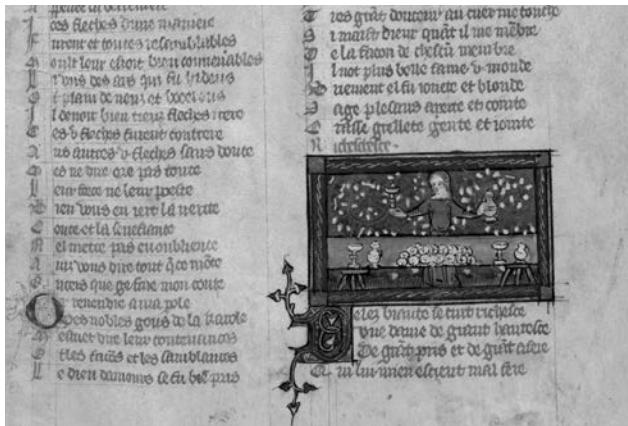 ces fleches dune maniere
Furent et toutes resemblables
Moult leur estoit bien couenables
Li uns des ars qui fu hideus
Et plain de neuz et bocereus
Il deuoit bien tieux fleches trere
Ces v fleches furent contrere
Aus autres v fleches sans doute
Mes ne dire ore pas toute
Leur force ne leur poeste
Bien vous en iert la verite
Contee et la senefiance
Nel metre pas en oubliance
Ainz vous dire tout q̃ ce mõte
Aincois que ge fine mon conte
Or reuendre a ma pole
Des nobles gens de la karole
Mestuet dire leur contenances
Et les facõs et les samblances
Le dieu damours se fu biẽ pris
Tres grãt douceur au cuer me touche
Si maist dieux quãt il me mẽbre
De la facon de chascũ membre
Il not plus belle fame v monde
Briement el fu ionete et blonde
Sage plesans aperte et cointe
Grasse grellete gente et iointe
Richesce
Delez biaute se tint richesce
Vne dame de grant hautesce
De grãt pris et de grãt afere
Qui lui ne aus siens mal fere